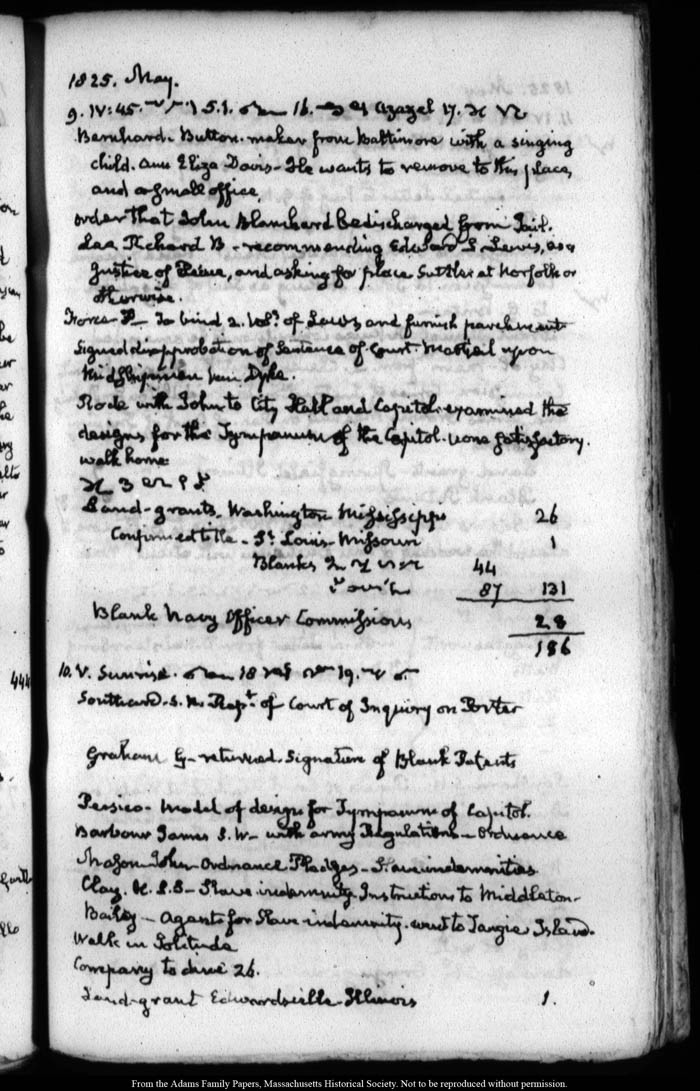 1825. May.
9. IV:45. 5.1. 16. Azazel 17.
Bernhard. Button-maker from Baltimore with a singing
child. Ann Eliza Davis. He wants to remove to this place,
and a small office.
Order that John Blanchard be discharged from Jail.
Lee, Richard B - recommending Edward S. Lewis, as a
Justice of Peace, and asking for place Suttler at Norfolk or
otherwise.
Force P_ To bind 2. Vols. of Laws and furnish parchment
Signed disapprobation of Sentence of Court-Martial upon
Midshipman Van Dyke.
Rode with John to City Hall and Capitol. examined the
designs for the Tympanum of the Capitol. none satisfactory.
walk home
Land-grants. Washington Mississippi 26
Confirmed title - St. Louis. Missouri 1
Blanks 44
87 131
Blank Navy Officer Commissions 28
186
444
10. V. Sunrise. 18 19.
Southard. S. L. Rept. of Court of Inquiry on Porter
Graham G - returned. Signature of Blank Patents
Persico - Model of design for Tympanum of Capitol.
Barbour James S. W - with army Regulations - Ordnance
Mason John - Ordnance Pledges - Slave indemnities
Clay. H. S.S - Slave indemnity. Instructions to Middleton -
Bailey - Agents for Slave indemnity. went to Tangier Island.
Walk in Solitude
Company to dine 26.
Land-grant Edwardsville - Illinois 1.
From the Adams Family Papers, Massachusetts Historical Society. Not to be reproduced without permission.